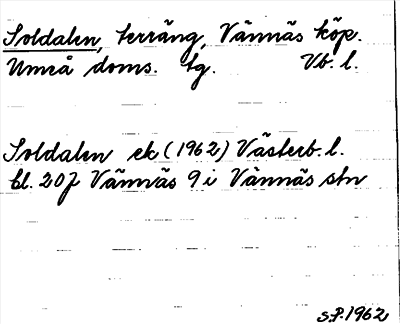 Soldalen, terräng, Vännäs köp.
Umeå doms. tg. Vb. l.
Soldalen ek (1962) Västerb. l.
bl. 20J Vännäs 9 i Vännäs stn
S.P. 1962